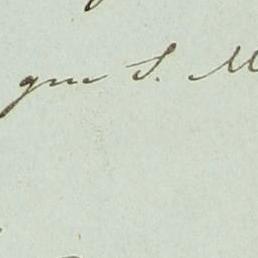 que S. M